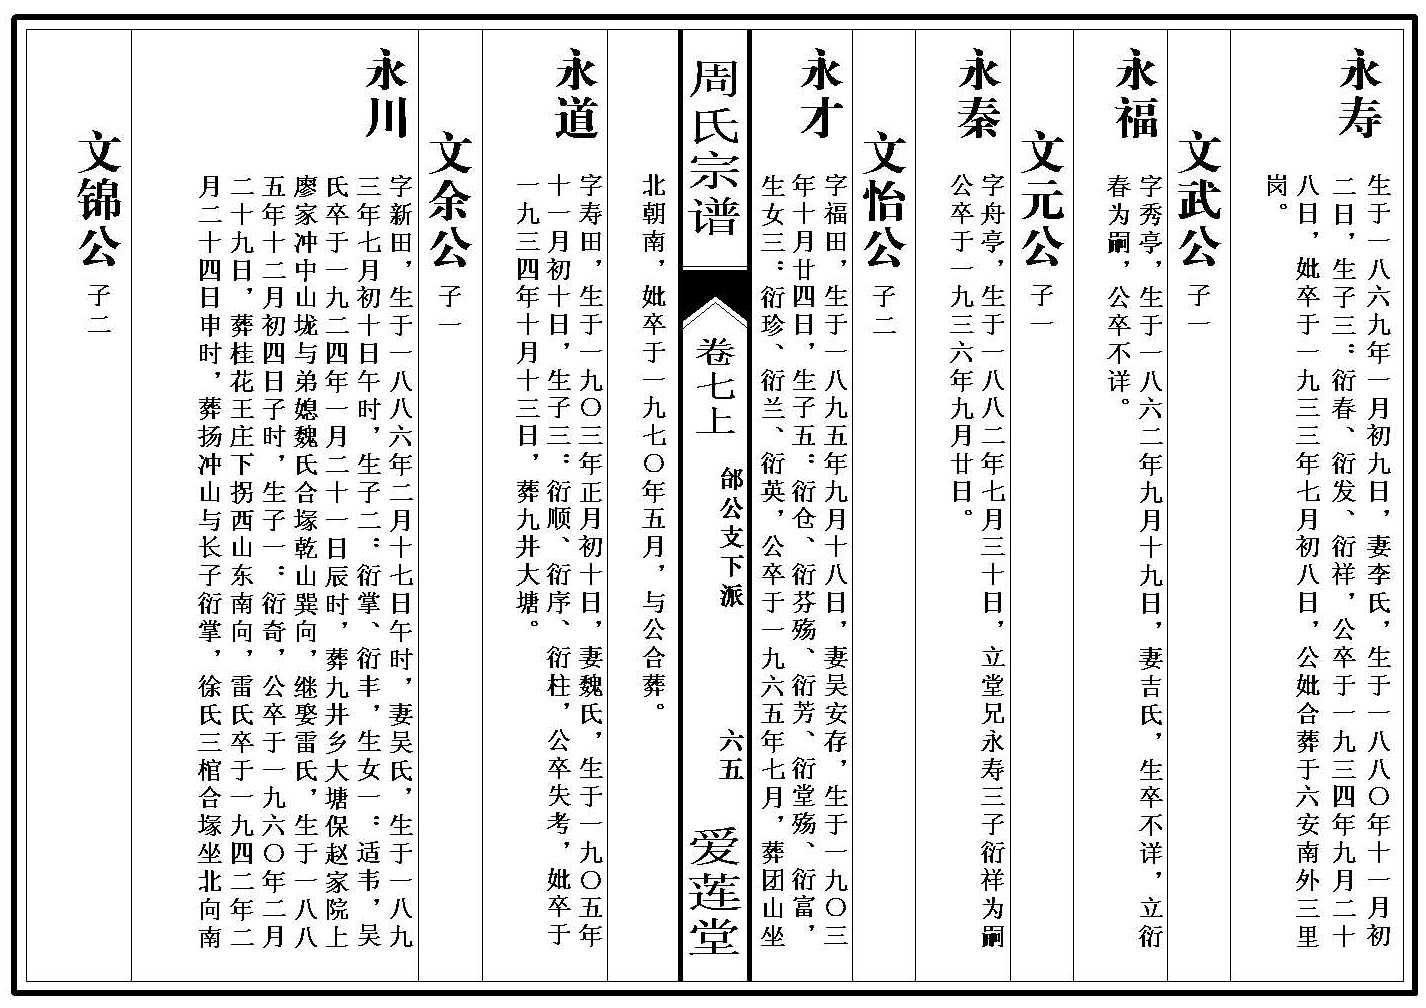 永寿
生于一八六九年一月初九日，妻李氏，生于一八八〇年十一月初
二日，生子三：衍春、衍发、衍祥，公卒于一九三四年九月二十
八日，妣卒于一九三三年七月初八日，公妣合葬于六安南外三里
岗。
文武公 子一
永福
字秀亭，生于一八六二年九月十九日，妻吉氏，生卒不详，立衍
春为嗣，公卒不详。
文元公 子一
永秦
字舟亭，生于一八八二年七月三十日，立堂兄永寿三子衍祥为嗣
公卒于一九三六年九月廿日。
文怡公 子二
永才
字福田，生于一八九五年九月十八日，妻吴安存，生于一九〇三
年十月廿四日，生子五：衍仓、衍芬殇、衍芳、衍堂殇、衍富，
生女三：衍珍、衍兰、衍英，公卒于一九六五年七月，葬团山坐
周氏宗谱
卷七上
邰公支下派
六五
爱莲堂
北朝南，妣卒于一九七〇年五月，与公合葬。
永道
字寿田，生于一九〇三年正月初十日，妻魏氏，生于一九〇五年
十一月初十日，生子三：衍顺、衍序、衍柱，公卒失考，妣卒于
一九三四年十月十三日，葬九井大塘。
文余公 子一
永川
字新田，生于一八八六年二月十七日午时，妻吴氏，生于一八九
三年七月初十日午时，生子二：衍掌、衍丰，生女一：适韦，吴
氏卒于一九二四年一月二十一日辰时，葬九井乡大塘保赵家院上
廖家冲中山垅与弟媳魏氏合塚乾山巽向，继娶雷氏，生于一八八
五年十二月初四日子时，生子一：衍奇，公卒于一九六〇年二月
二十九日，葬桂花王庄下拐西山东南向，雷氏卒于一九四二年二
月二十四日申时，葬扬冲山与长子衍掌，徐氏三棺合塚坐北向南
文锦公 子二